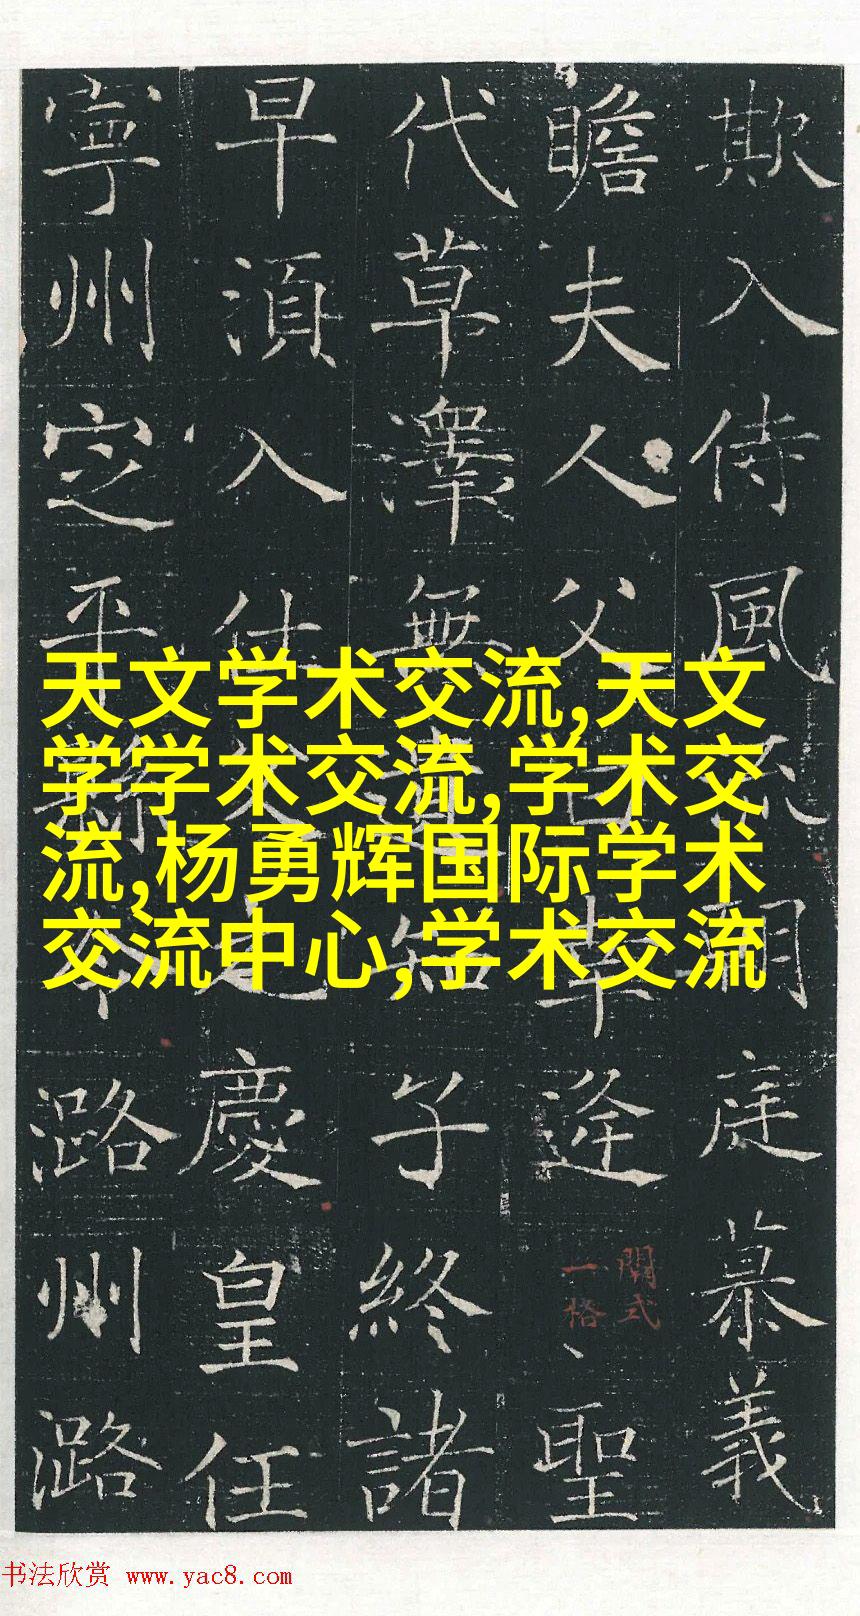 欺入侍風朝庭慕義
瞻夫人父逢聖
一格
代草澤無遺知子終諸
早湏入仕慶皇任
寧州定平縣令潞州潞
天文学术交流,天文
学学术交流,学术交
流,杨勇辉国际学术
交流中心,学术交流
书法欣赏 www.yac8.com